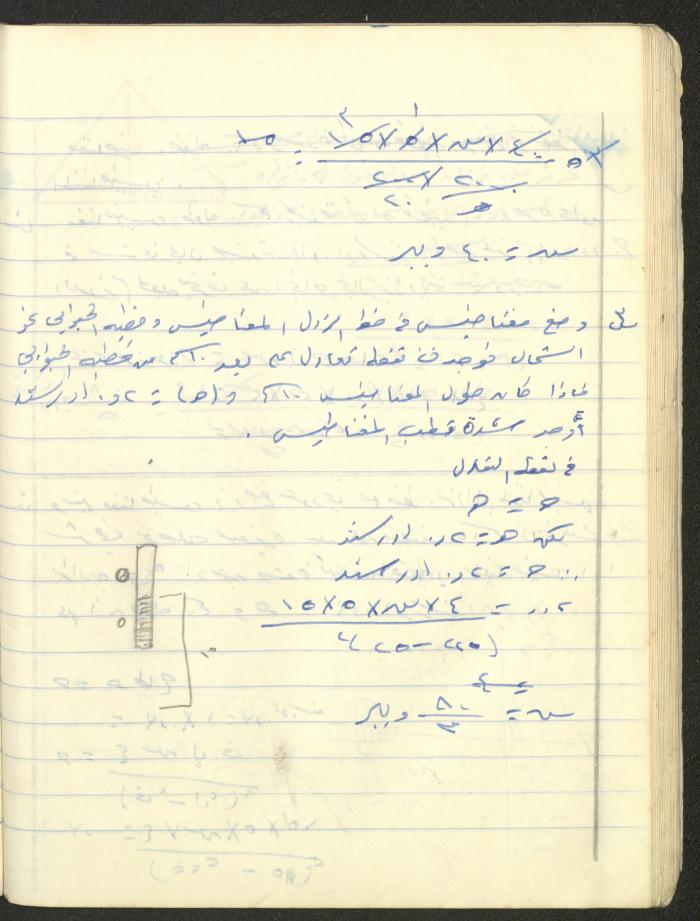 ٤ × س × ٥ × ١٥
س = ٤٠ ويبر
س٣ وضع مغناطيس في خط الزوال المغناطيسي وقطبه الجنوبي نحو
الشمال فوجدت نقطة تعادل على بعد ١٠ سم من قطبه الجنوبي
فاذا كان طول المغناطيس ١٠ سم و (هـ) = ٢ر. اورستد
أوجد شدة قطب المغناطيس .
في نقطة التعادل
ح = هـ
لكن هـ = ٢ر. اورستد
∴ ح = ٢ر. اورستد
٢ر. = ٤ × س × ٥ × ١٥
(٢٢٥ - ٢٥)٢
س = ٨٠/٣ ويبر
١٠